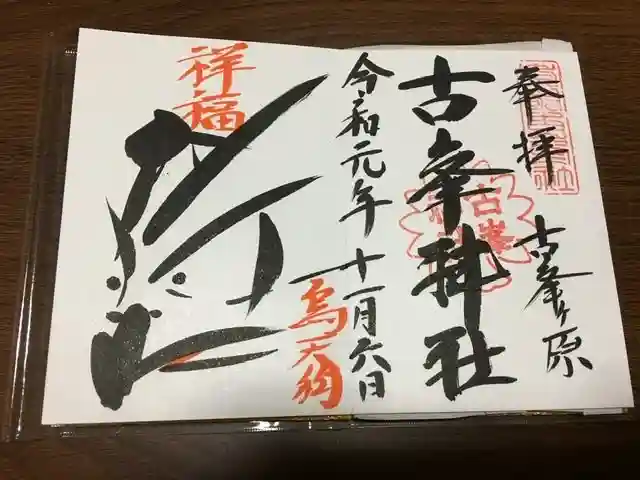 奉拝
古峯ヶ原
古峯神社
古峯神社
令和元年十一月六日
祥福
烏天狗